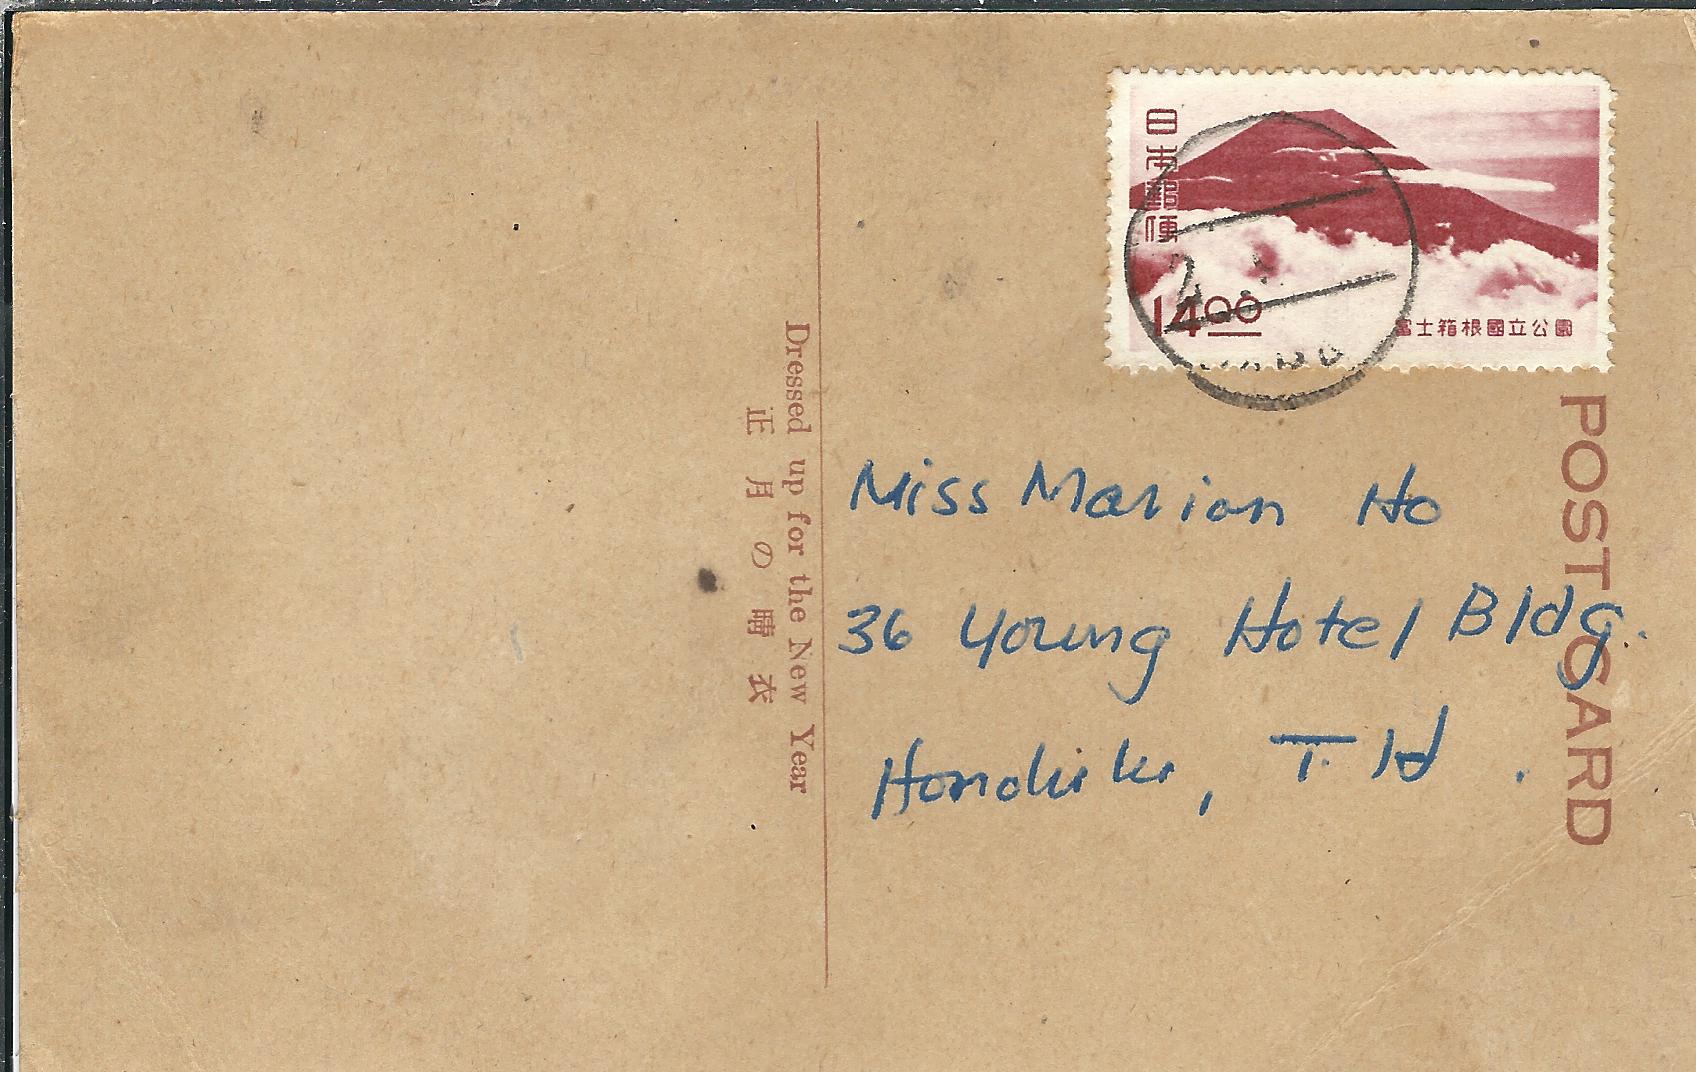 日本郵便
14.00
富士箱根國立公園
POST CARD
Dressed up for the New Year
正月の晴衣
Miss Marion Ho
36 Young Hotel Bldg.
Honolulu, T.H.